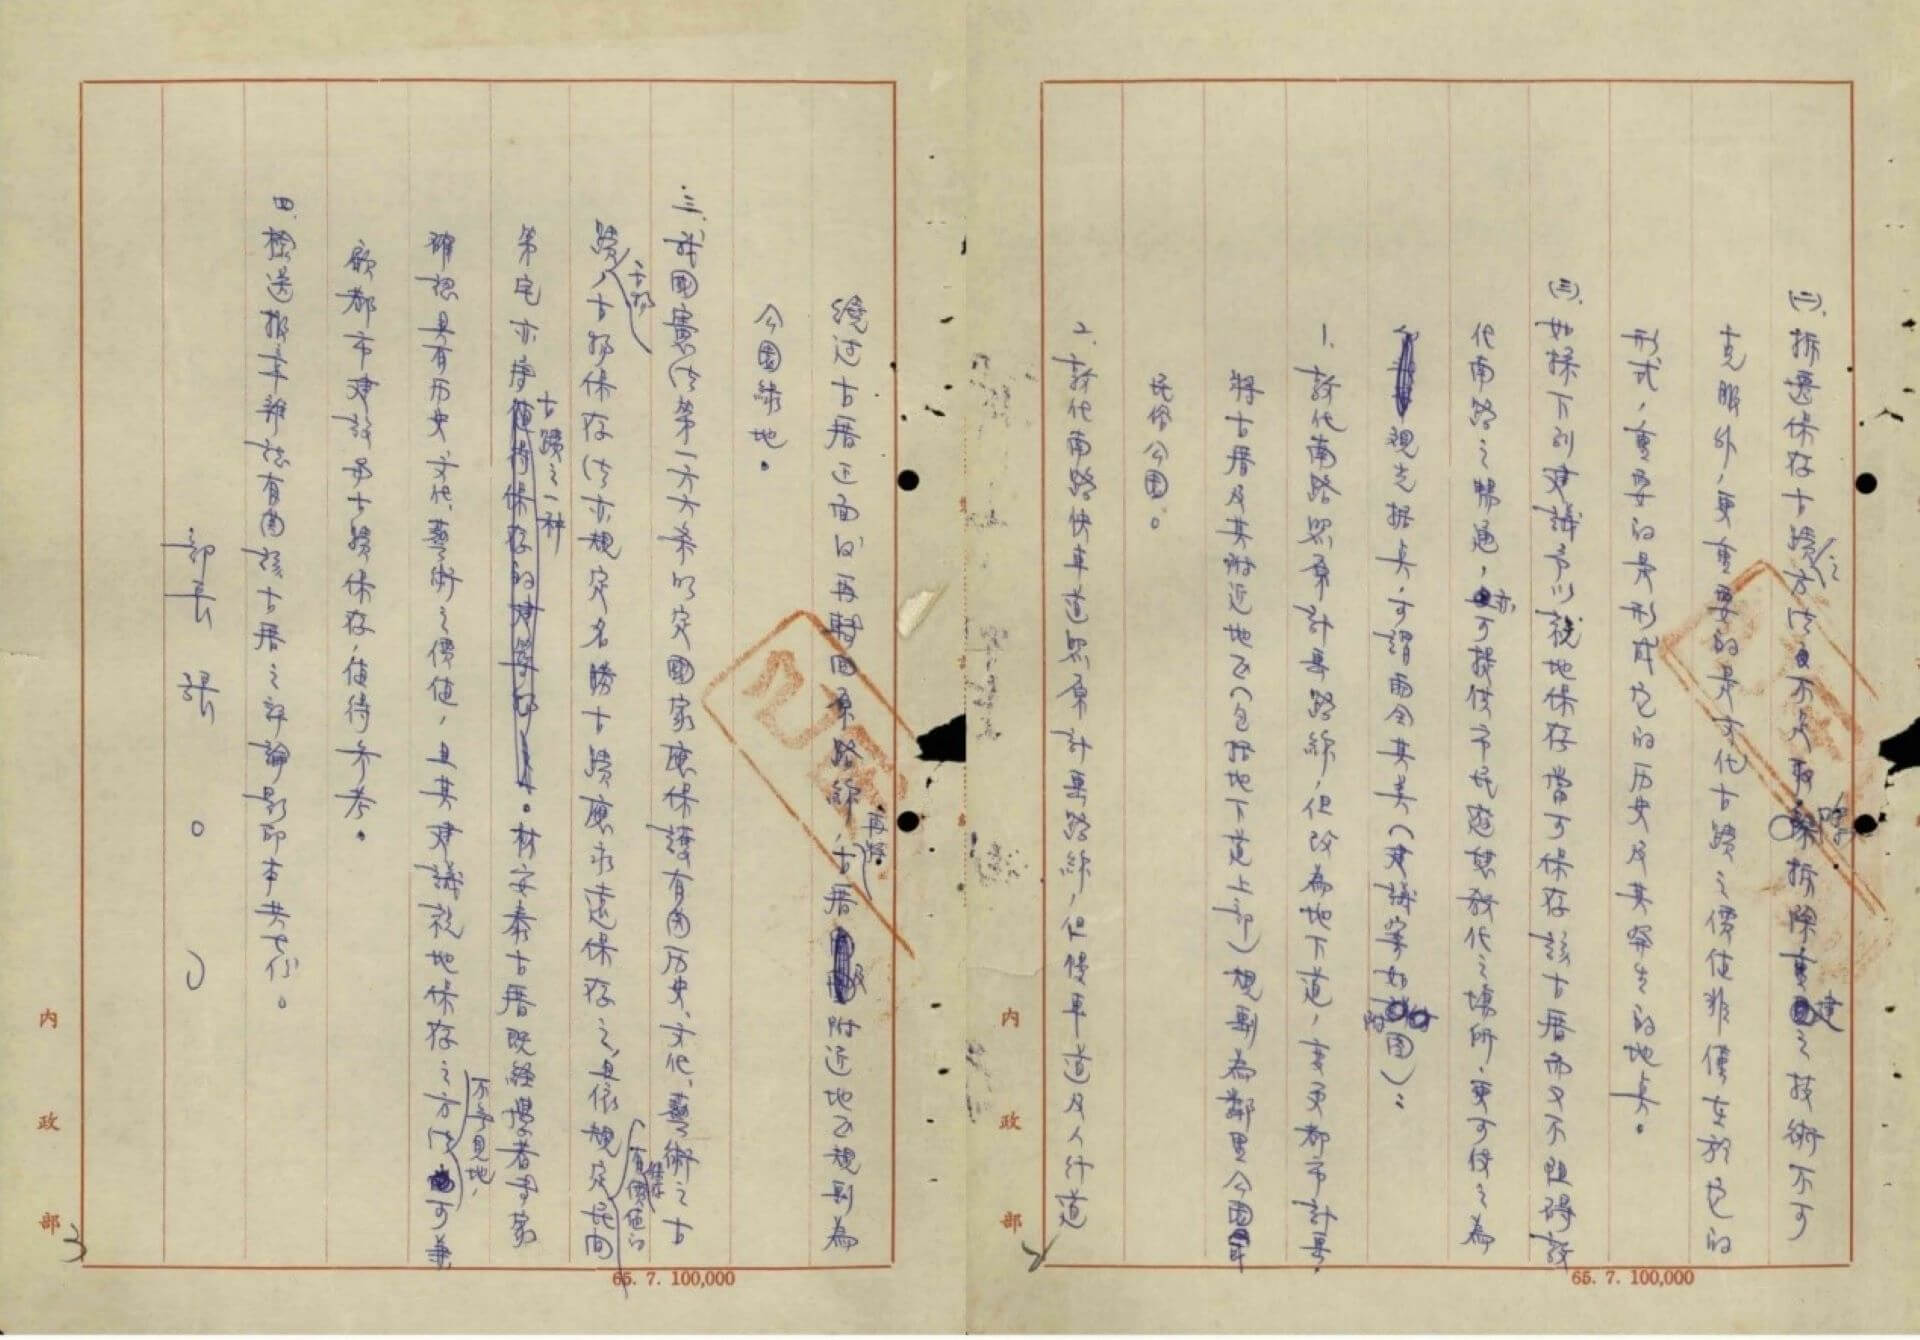 (二)、拆遷保存古蹟之方法不足取，除拆除重建之技術不可
克服外，更重要的是文化古蹟之價值非僅在於它的
形式，重要的是形成它的历史及其發生的地点。
(三)、如採下列建議予以就地保存當可保存該古厝而又不阻碍敦
化南路之暢通，亦可提供市民遊憩教化之場所，更可使之為
觀光據点，可謂兩全其美(建議案如附圖)：
1. 敦化南路照原計畫路線，但改為地下道，变更都市計畫，
將古厝及其附近地区(包括地下道上部)規劃為鄰里公園或
民俗公園。
2. 敦化南路快車道照原計畫路線，但慢車道及人行道
繞过古厝正面後再轉回原路線，再將古厝及附近地区規劃為
公園綠地。
三、我國憲法第一六六条明定國家應保護有関历史、文化、藝術之古
蹟、古物，古物保存法亦規定名勝古蹟應永遠保存之，且依規定民间有價值的
第宅亦屬古蹟之一种。林安泰古厝既経學者專家
確認具有历史、文化、藝術之價值，且其建議就地保存之方法，不無見地，可兼
顧都市建設与古蹟保存，值待參考。
四、檢送报章雜誌有関該古厝之評論影印本共七份。
部長 張 ○ ○
內政部
65. 7. 100,000
3
內政部
65. 7. 100,000
2